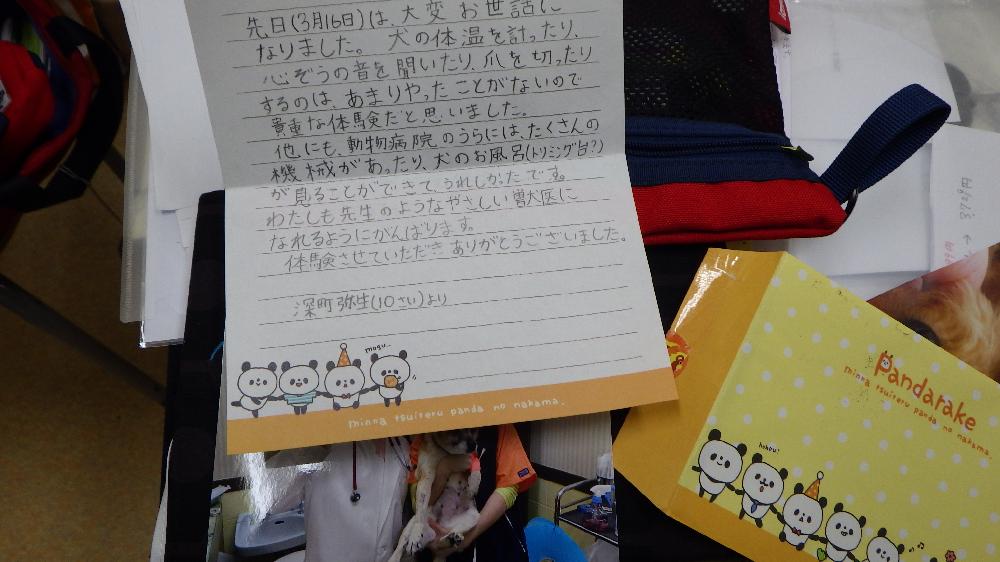 先日(3月16日)は、大変 お世話に
なりました。 犬の体温を計ったり、
心ぞうの音を聞いたり、爪を切ったり
するのは、あまりやったことがないので
貴重な体験だと思いました。
他にも、動物病院のうらには、たくさんの
機械があったり、犬のお風呂(トリミング台?)
が見ることができて、うれしかったです。
わたしも先生のようなやさしい獣医に
なれるようにがんばります。
体験させていただきありがとうございました。
深町弥生(10さい)より
mogu...
minna tsuiteru panda no nakama.
Pandarake
minna tsuiteru panda no nakama.